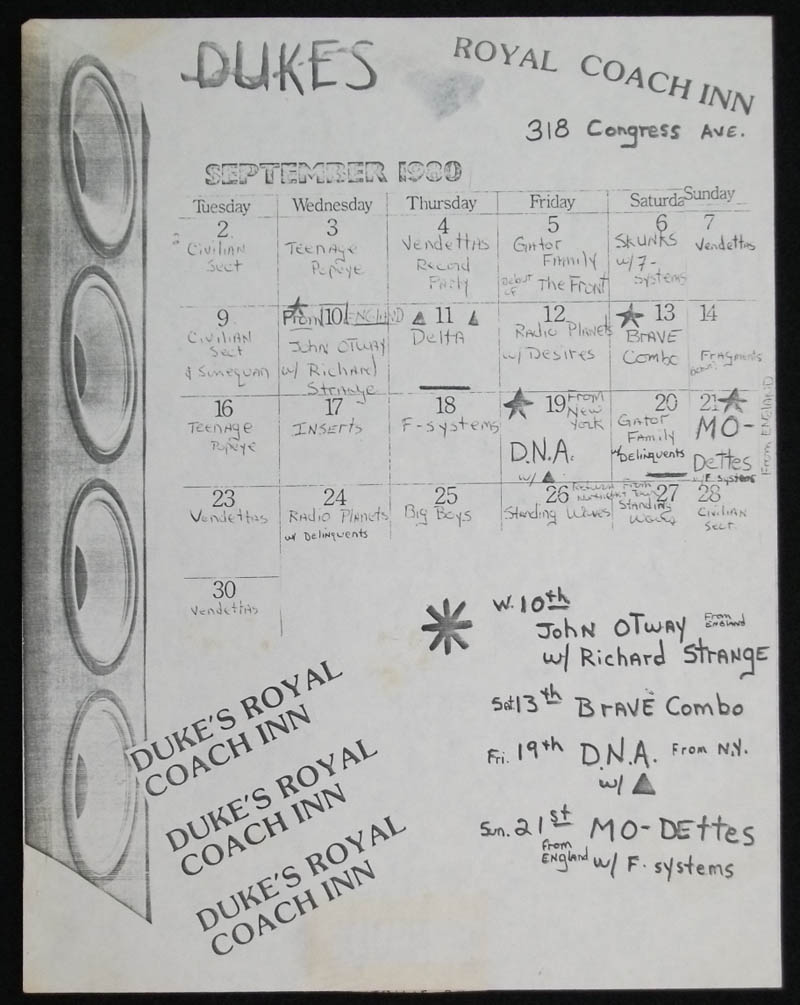 DUKES
ROYAL COACH INN
318 Congress AVE.
SEPTEMBER 1980
Tuesday Wednesday Thursday Friday Saturda Sunday
2 3 4 5 6 7
Civilian Sect
Teenage Popeye
Vendettas Record Party
Gator Family
Debut of The Front
SKUNKS w/ 7-Systems
Vendettas
9 10 11 12 13 14
Civilian Sect & Sinequan
From ENGLAND
John OTWAY w/ Richard Strange
Delta
Radio Planets w/ Desires
BRAVE Combo
Fragments
16 17 18 19 20 21
Teenage Popeye
INSERTS
F-systems
From New York
D.N.A. w/ ▲
Gator Family w/ Delinquents
MO-Dettes w/ F. systems
From ENGLAND
23 24 25 26 27 28
Vendettas
Radio Planets w/ Delinquents
Big Boys
Return From
Standing Waves
Standing Waves
Civilian Sect.
30
Vendettas
W. 10th
John OTWAY From ENGLAND
w/ Richard STRANGE
Sat 13th BRAVE Combo
Fri. 19th D.N.A. From N.Y.
w/ ▲
Sun. 21st MO-DEttes
From ENGland w/ F. systems
DUKE'S ROYAL
COACH INN
DUKE'S ROYAL
COACH INN
DUKE'S ROYAL
COACH INN